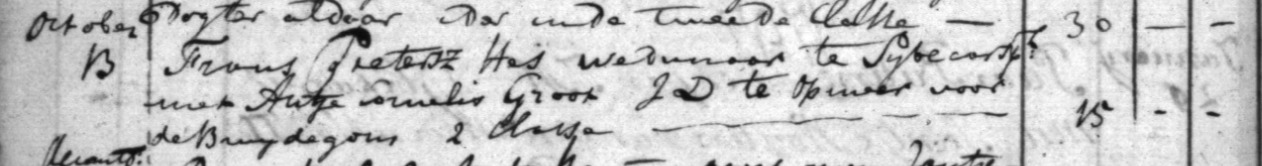 October Dogter aldaar der in de tweede Classe — 30 — –
B Frans Pietersz Has weduwnaar te Sybecarspel
met Antje Cornelis Groot J D te Opmeer voor
de Bruydegom 2 Classe — 15 - -